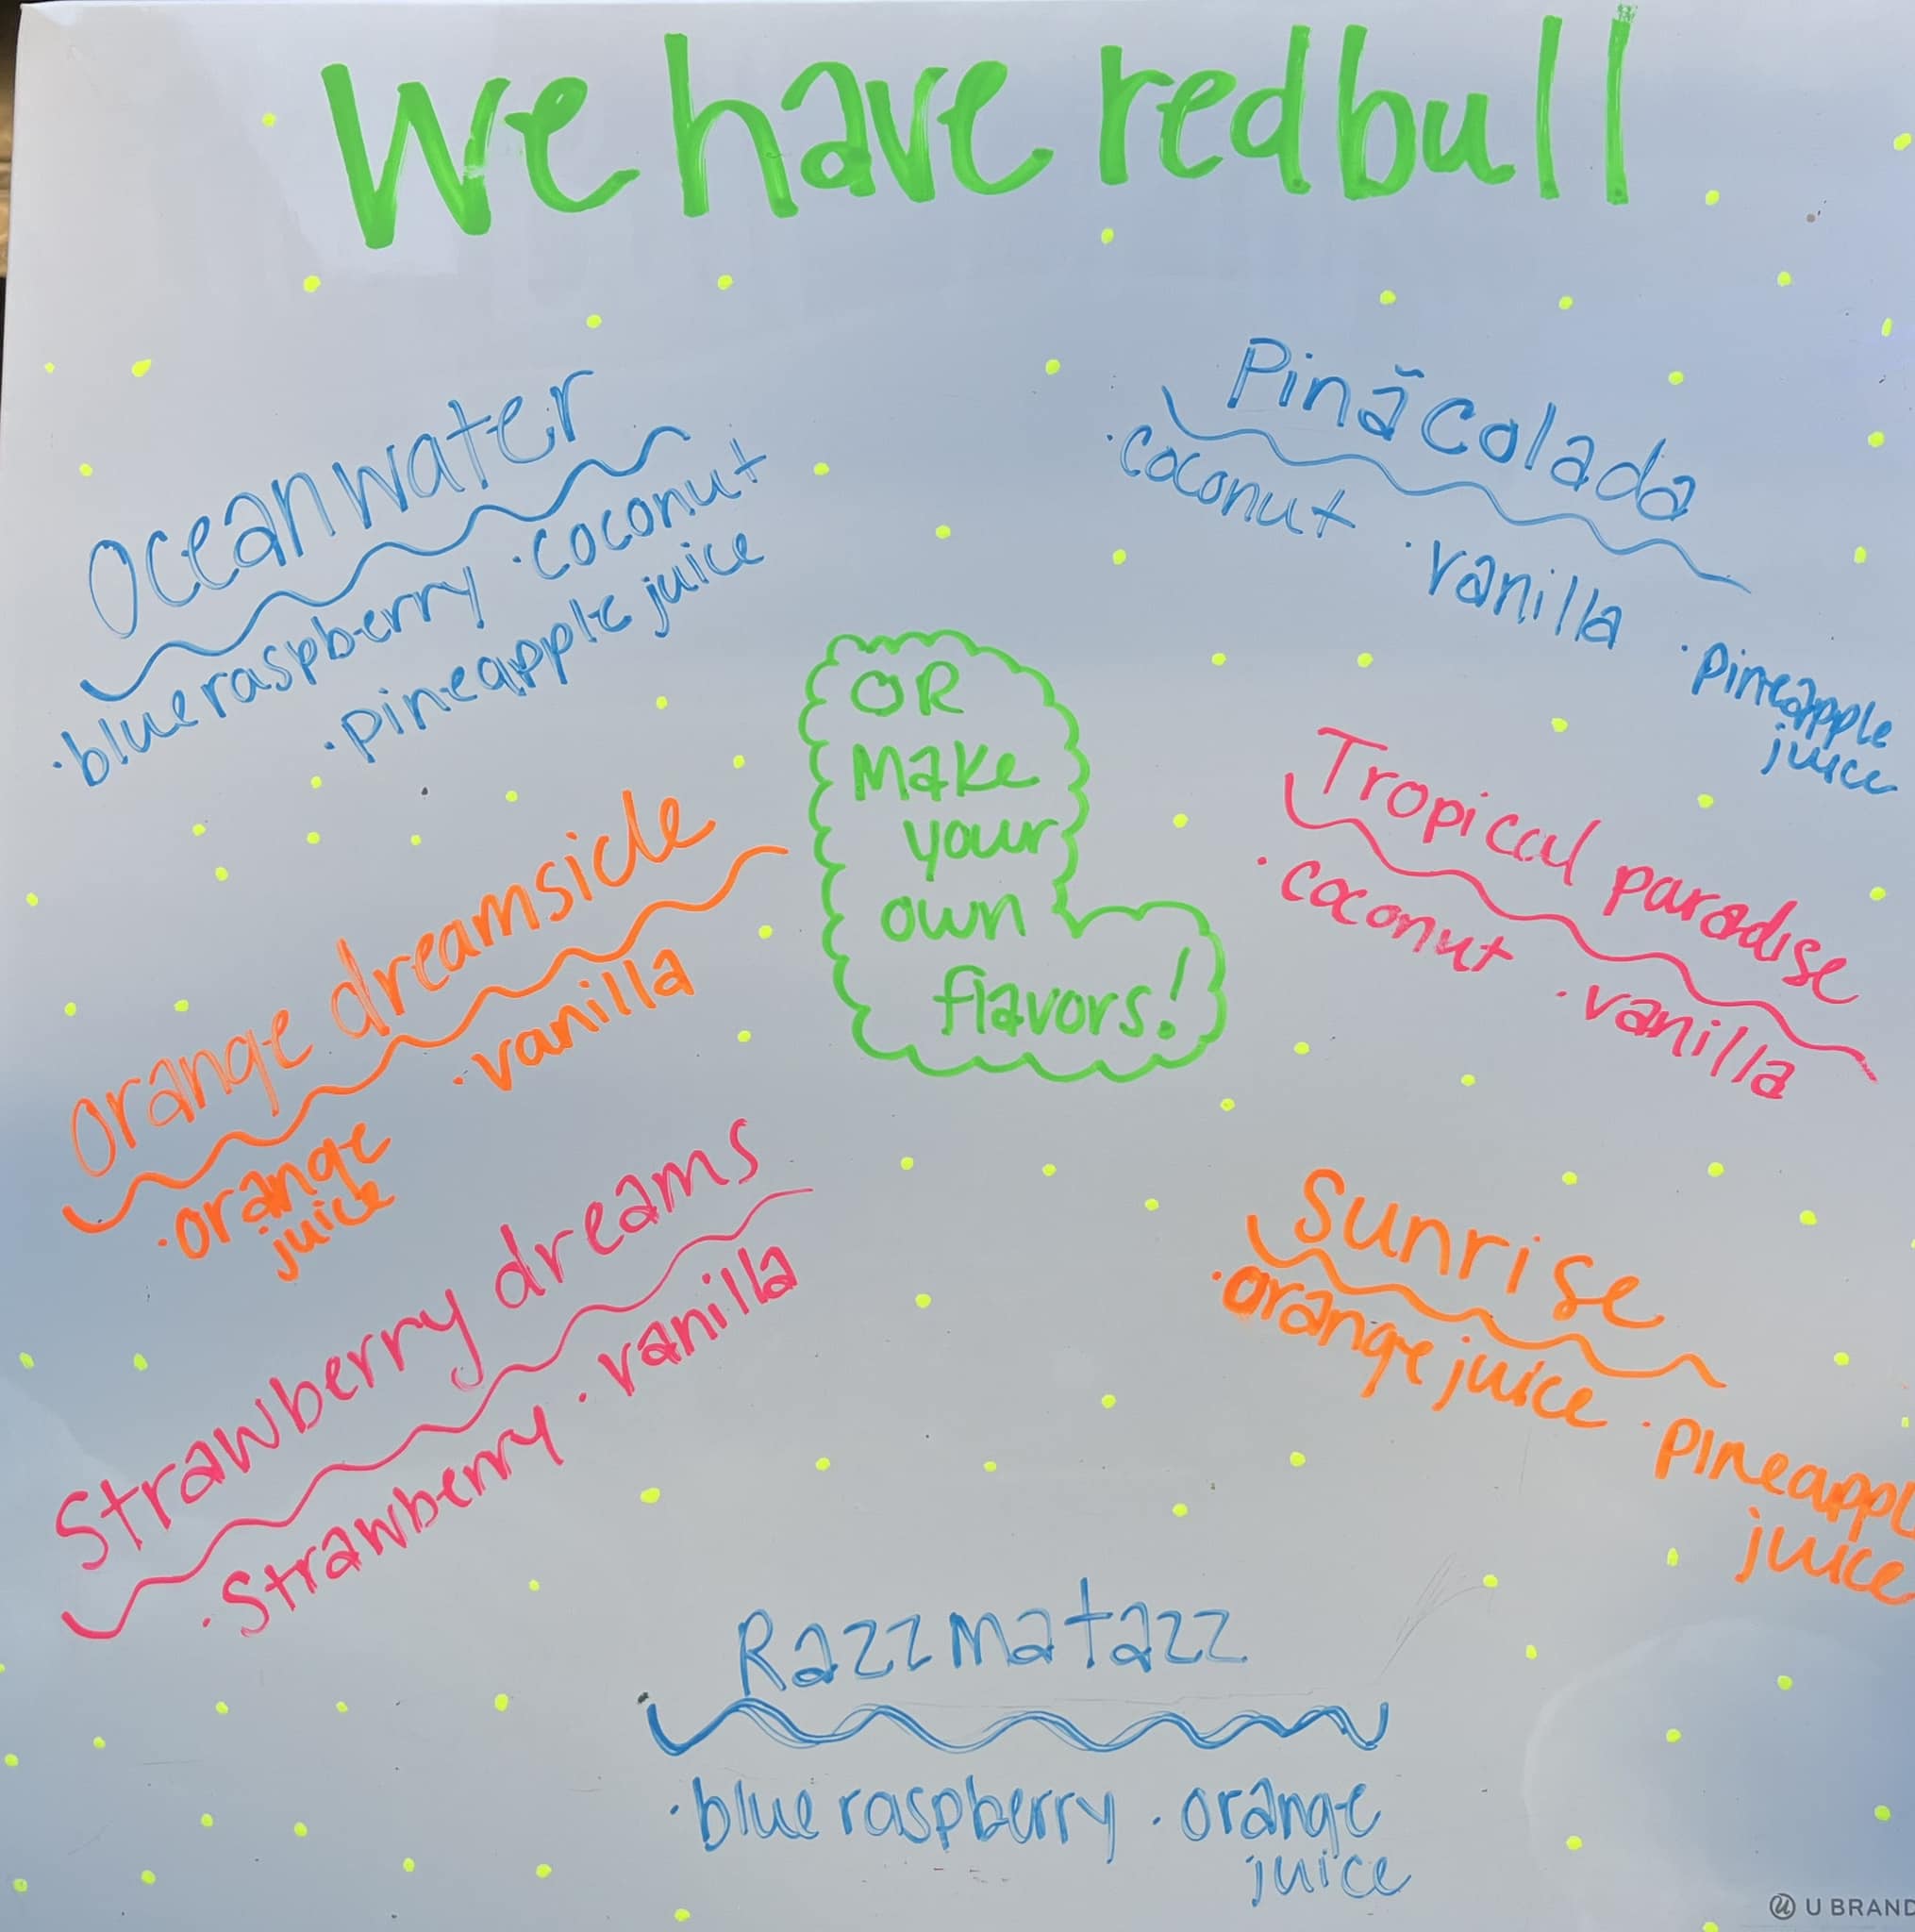 We have redbull
Oceanwater
·blue raspberry ·coconut
·pineapple juice
Pinãcolada
·coconut ·vanilla ·pineapple
juice
OR
Make
your
own
flavors!
Orange dreamsicle
·orange
juice
·vanilla
Tropical paradise
·coconut ·vanilla
Strawberry dreams
·Strawberry ·vanilla
Sunrise
·orange juice ·pineappl
juice
Razzmatazz
·blue raspberry ·orange
juice
U BRAND